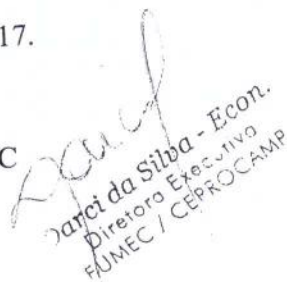 17.
C
Darci da Silva - Econ.
Diretora Executiva
FUMEC / CEPROCAMP